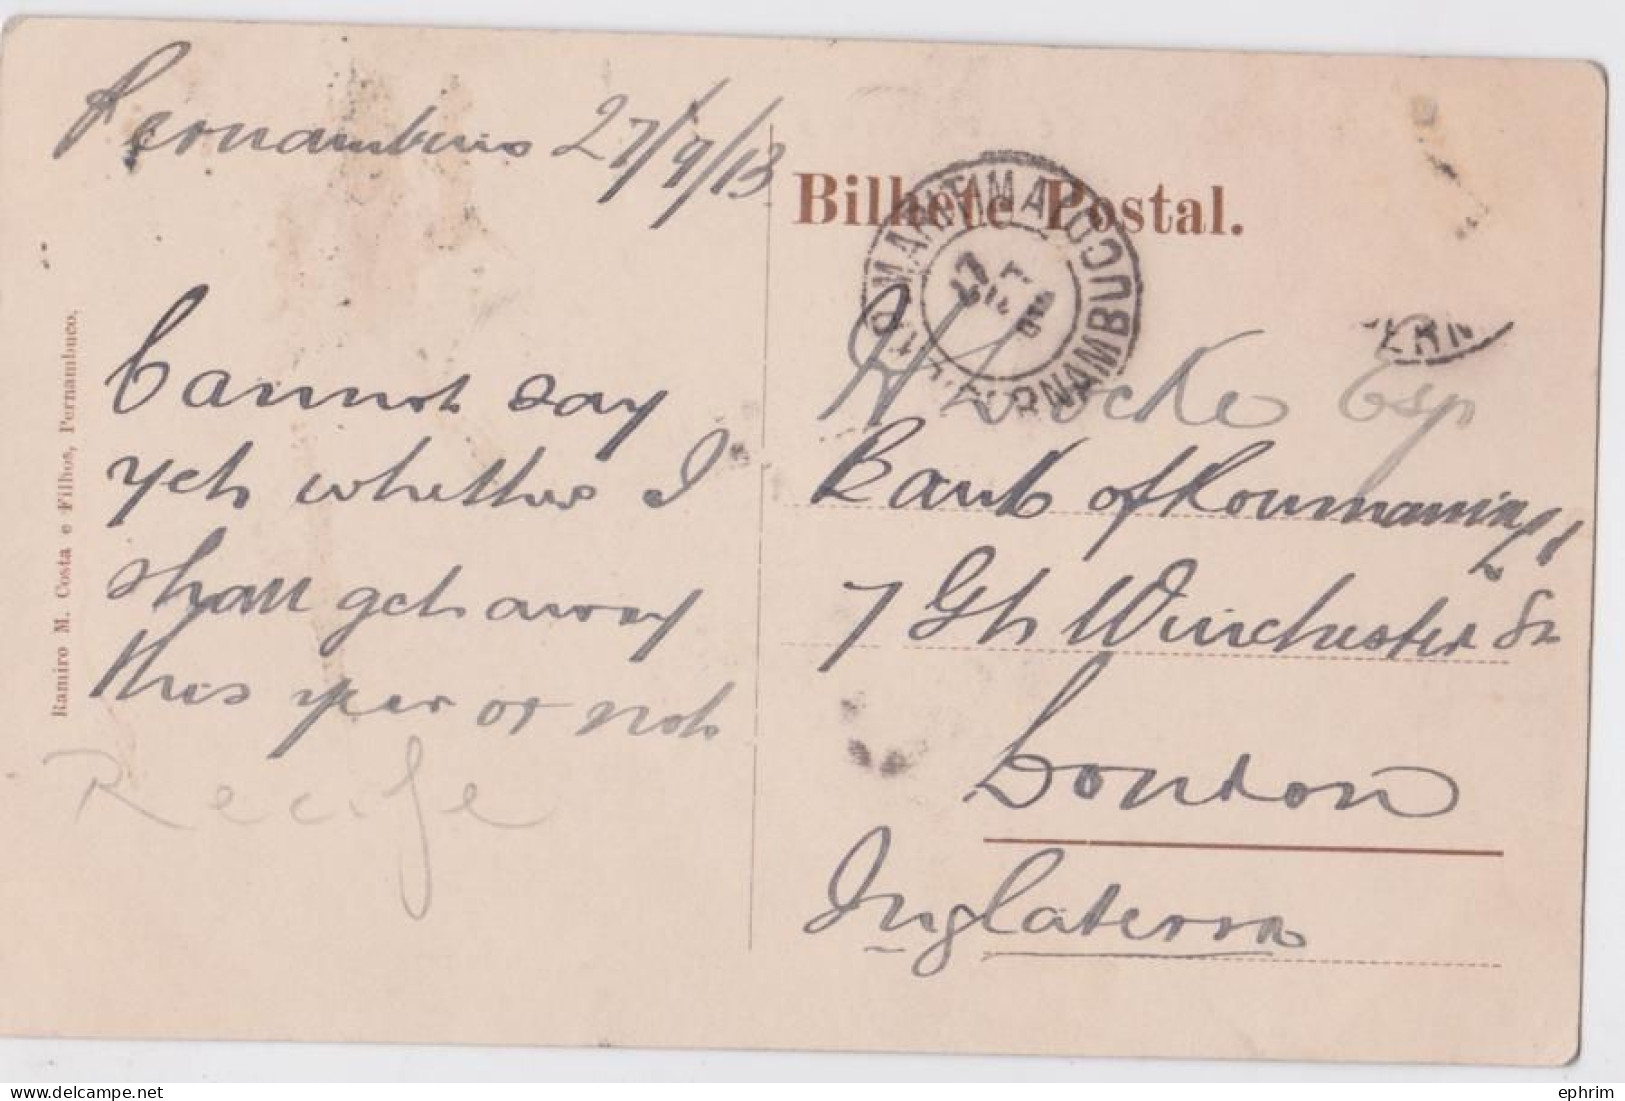 Pernambuco 27/9/13
Cannot say
yet whether I
shall get away
this year or not
Recife
Ramiro M. Costa e Filhos, Pernambuco.
Bilhete Postal.
MARITIMA
PERNAMBUCO
PERN
Locke Esq
Bank of Roumania
7 Gt Winchester St
London
Inglaterra
ephrim